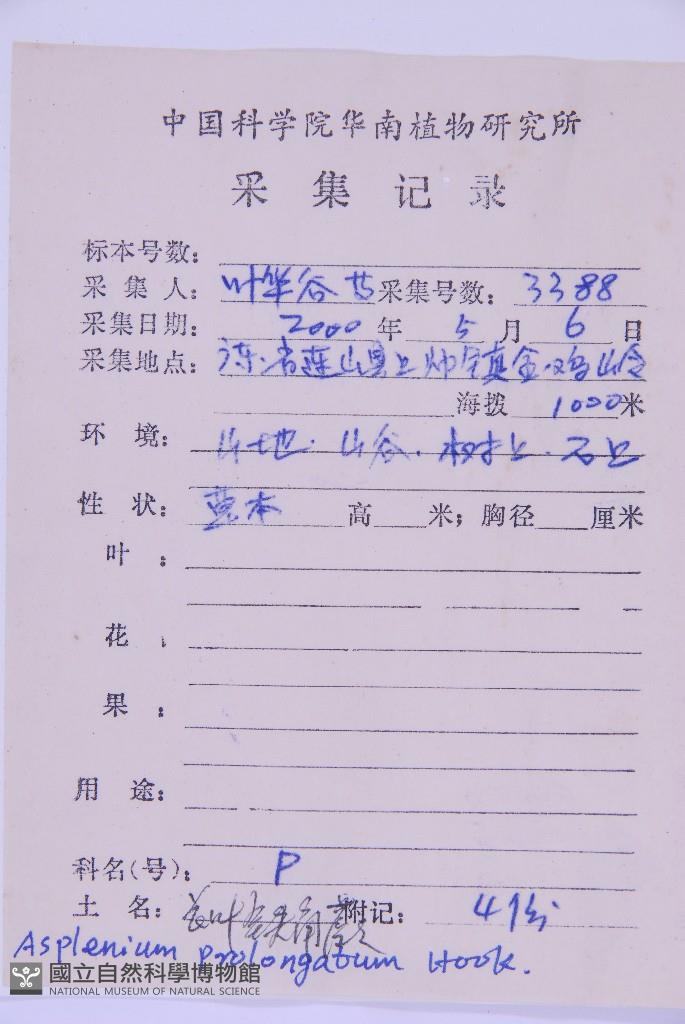 中国科学院华南植物研究所
采集记录
标本号数：
采集人：叶华谷 采集号数：3388
采集日期：2000年5月6日
采集地点：省连山县上帅镇金鸡岭
海拨1000米
环境：山地．山谷．树上．石上
性状：草本 高 米；胸径 厘米
叶：
花：
果：
用途：
科名(号)：P
土名：长叶 附记：4份
Asplenium prolongatum Hook.
國立自然科學博物館
NATIONAL MUSEUM OF NATURAL SCIENCE